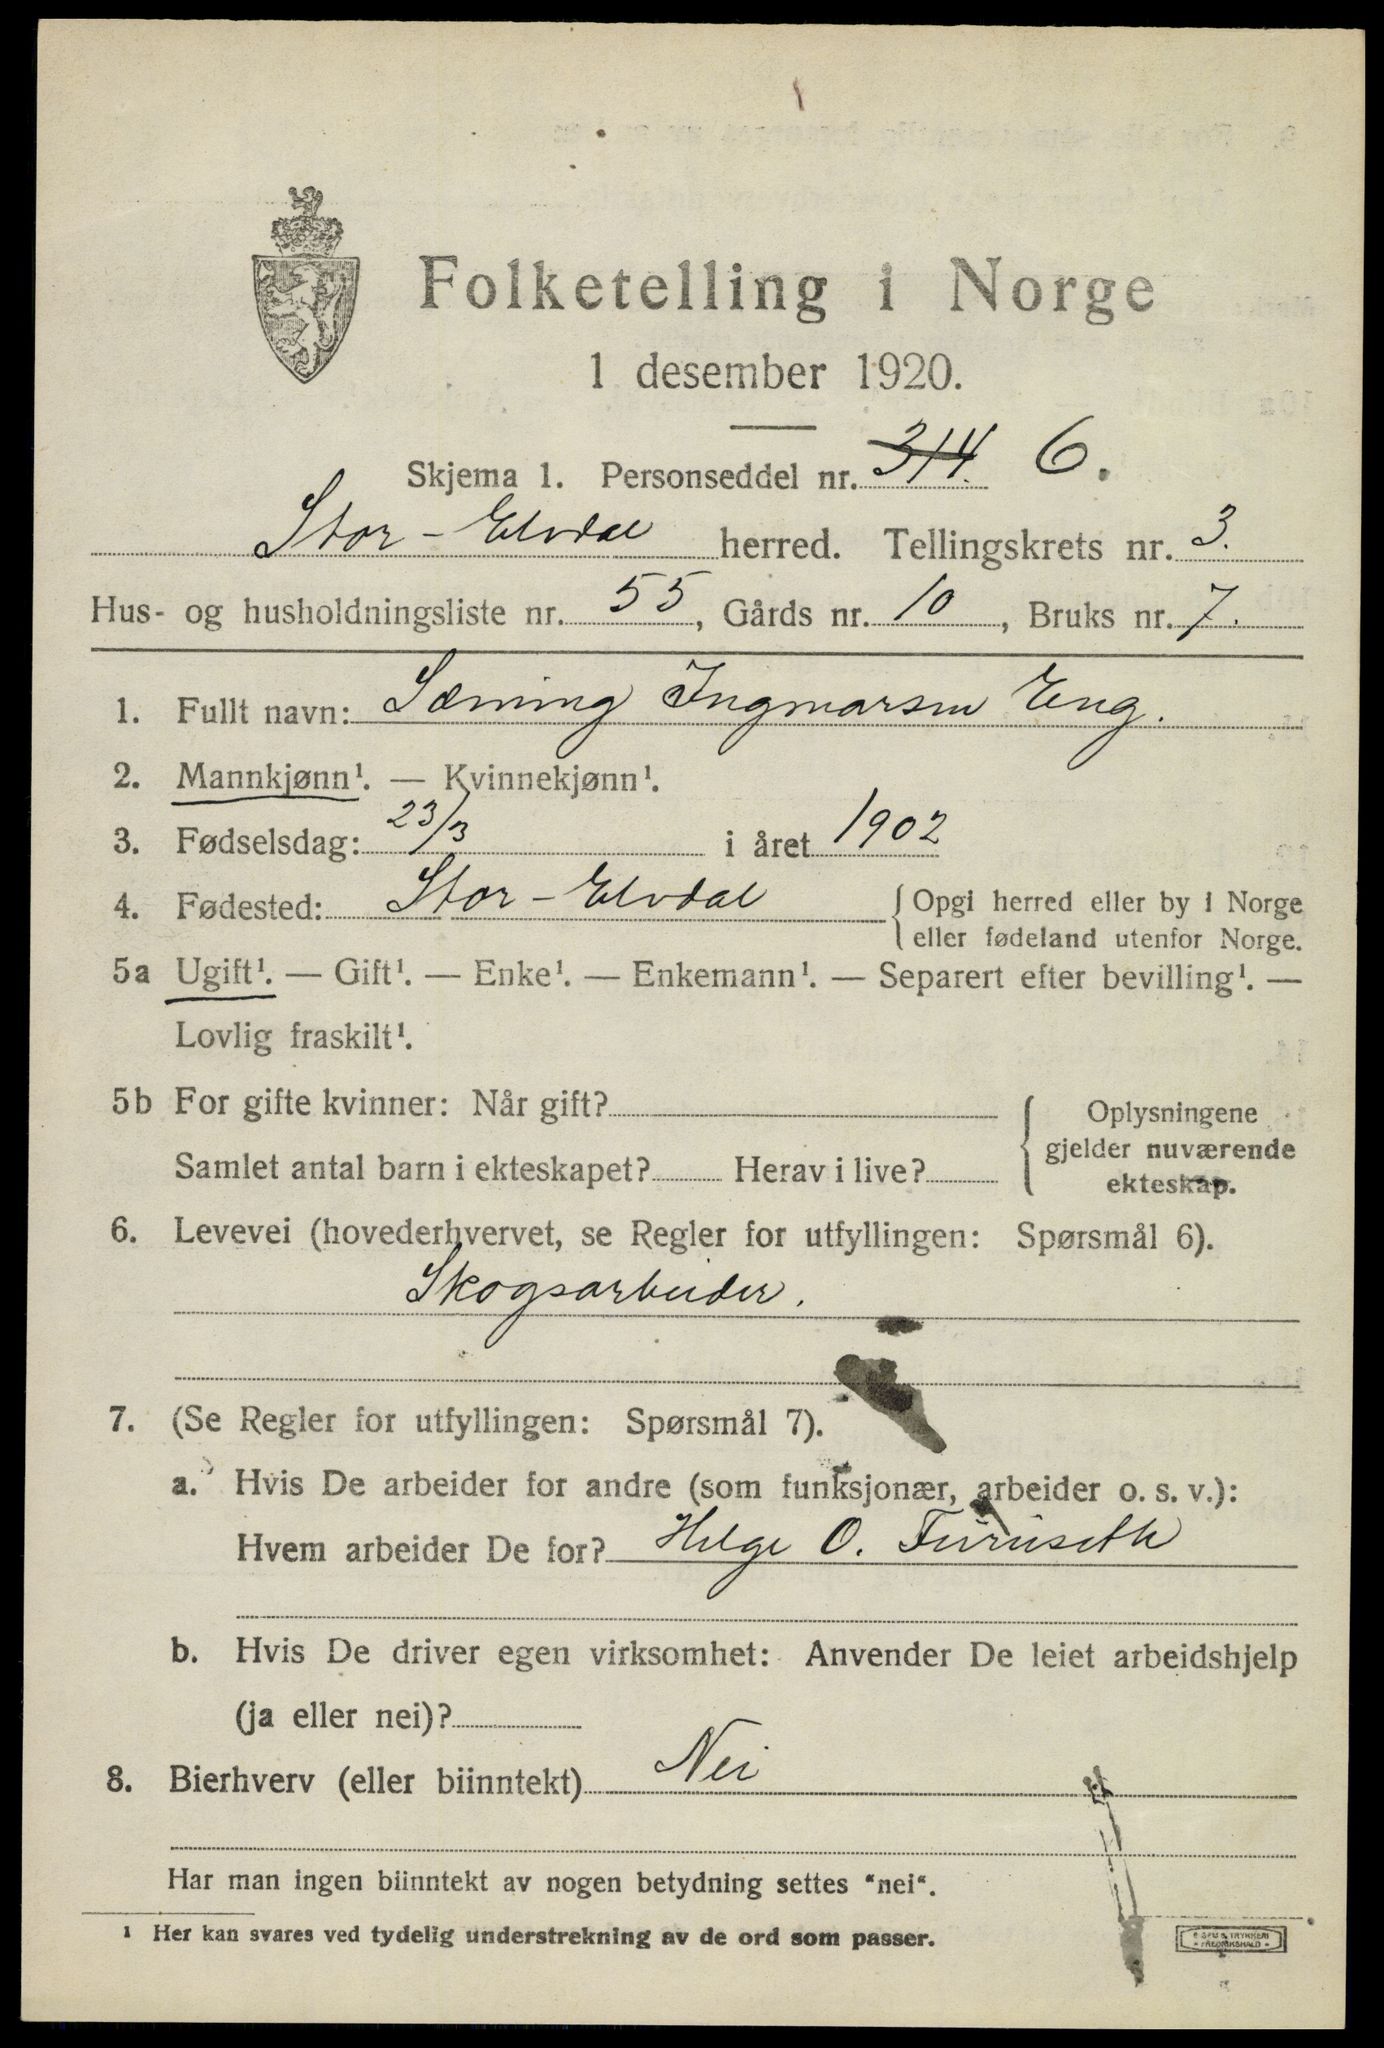 Folketelling i Norge
1 desember 1920.
Skjema 1. Personseddel nr. 314. 6.
Stor-Elvdal herred. Tellingskrets nr. 3.
Hus- og husholdningsliste nr. 55, Gårds nr. 10, Bruks nr. 7.
1. Fullt navn: Sæming Ingmarsen Eng.
2. Mannkjønn¹. — Kvinnekjønn¹.
3. Fødselsdag: 23/3 i året 1902
4. Fødested: Stor-Elvdal { Opgi herred eller by i Norge
eller fødeland utenfor Norge.
5a Ugift¹. — Gift¹. — Enke¹. — Enkemann¹. — Separert efter bevilling¹. —
Lovlig fraskilt¹.
5b For gifte kvinner: Når gift? { Oplysningene
gjelder nuværende
Samlet antal barn i ekteskapet? Herav i live? ekteskap.
6. Levevei (hovederhvervet, se Regler for utfyllingen: Spørsmål 6).
Skogsarbeider.
7. (Se Regler for utfyllingen: Spørsmål 7).
a. Hvis De arbeider for andre (som funksjonær, arbeider o. s. v.):
Hvem arbeider De for? Helge O. Furuseth
b. Hvis De driver egen virksomhet: Anvender De leiet arbeidshjelp
(ja eller nei)?
8. Bierhverv (eller biinntekt) Nei
Har man ingen biinntekt av nogen betydning settes "nei".
¹ Her kan svares ved tydelig understrekning av de ord som passer.